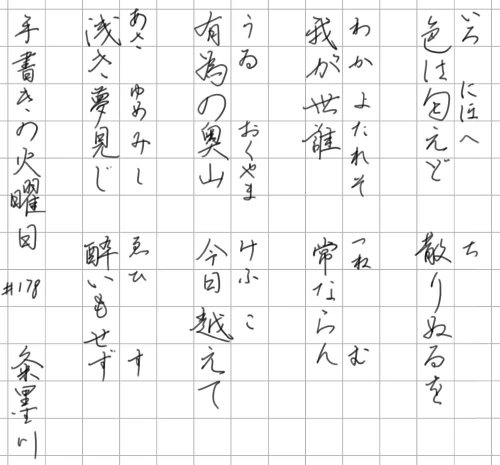 いろ　にほへ　ち
色は匂えど　散りぬるを
わかよたれそ　つね　む
我が世誰　常ならん
うゐ　おくやま　けふ　こ
有為の奥山　今日越えて
あさ　ゆめみし　ゑひ　す
浅き夢見じ　酔いもせず
手書きの火曜日 #178　粂墨川